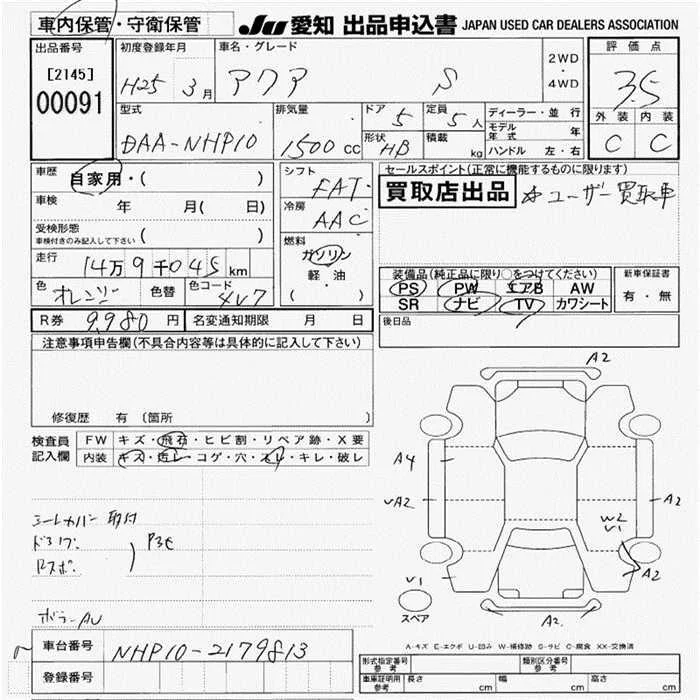 車内保管・守衛保管 JU 愛知 出品申込書 JAPAN USED CAR DEALERS ASSOCIATION
出品番号 初度登録年月 車名・グレード 2WD・4WD 評価点
[2145] H25 3月 アクア S 3.5
00091
型式 排気量 ドア 5 定員 5人 ディーラー・並行 外装 内装
DAA-NHP10 1500cc 形状 HB 積載 kg モデル年式 年 C C
ハンドル 左・右
車歴 自家用・( ) シフト FAT セールスポイント(正常に機能するものに限ります)
車検 年 月( 日) 冷房 AAC 買取店出品 ☆ユーザー買取車
受検形態
車検付きのみ記入して下さい ( ) 燃料 ガソリン
走行 14万9千045km 軽油 装備品(純正品に限り○をつけてください) 新車保証書
色 オレンジ 色替 色コード 4V7 ( ・ ) PS PW エアB AW 有・無
SR ナビ TV カワシート
R券 9,980円 名変通知期限 月 日 後日品
注意事項申告欄(不具合内容等は具体的に記入して下さい)
修復歴 有 〔箇所
検査員記入欄 FW キズ・飛石・ヒビ割・リペア跡・X要
内装 キズ・汚レ・コゲ・穴・スレ・キレ・破レ
シートカバー 取付
A2
A4
vA2
A2
W2
V1
A2
V1
スペア
A2
A-キズ E-エクボ U-凹み W-補修跡 S-サビ C-腐食 XX-交換済
車台番号 NHP10-2179813
登録番号
形式指定番号 参考 類別区分番号 参考
車庫証明用 参考 長さ cm 幅 cm 高さ cm